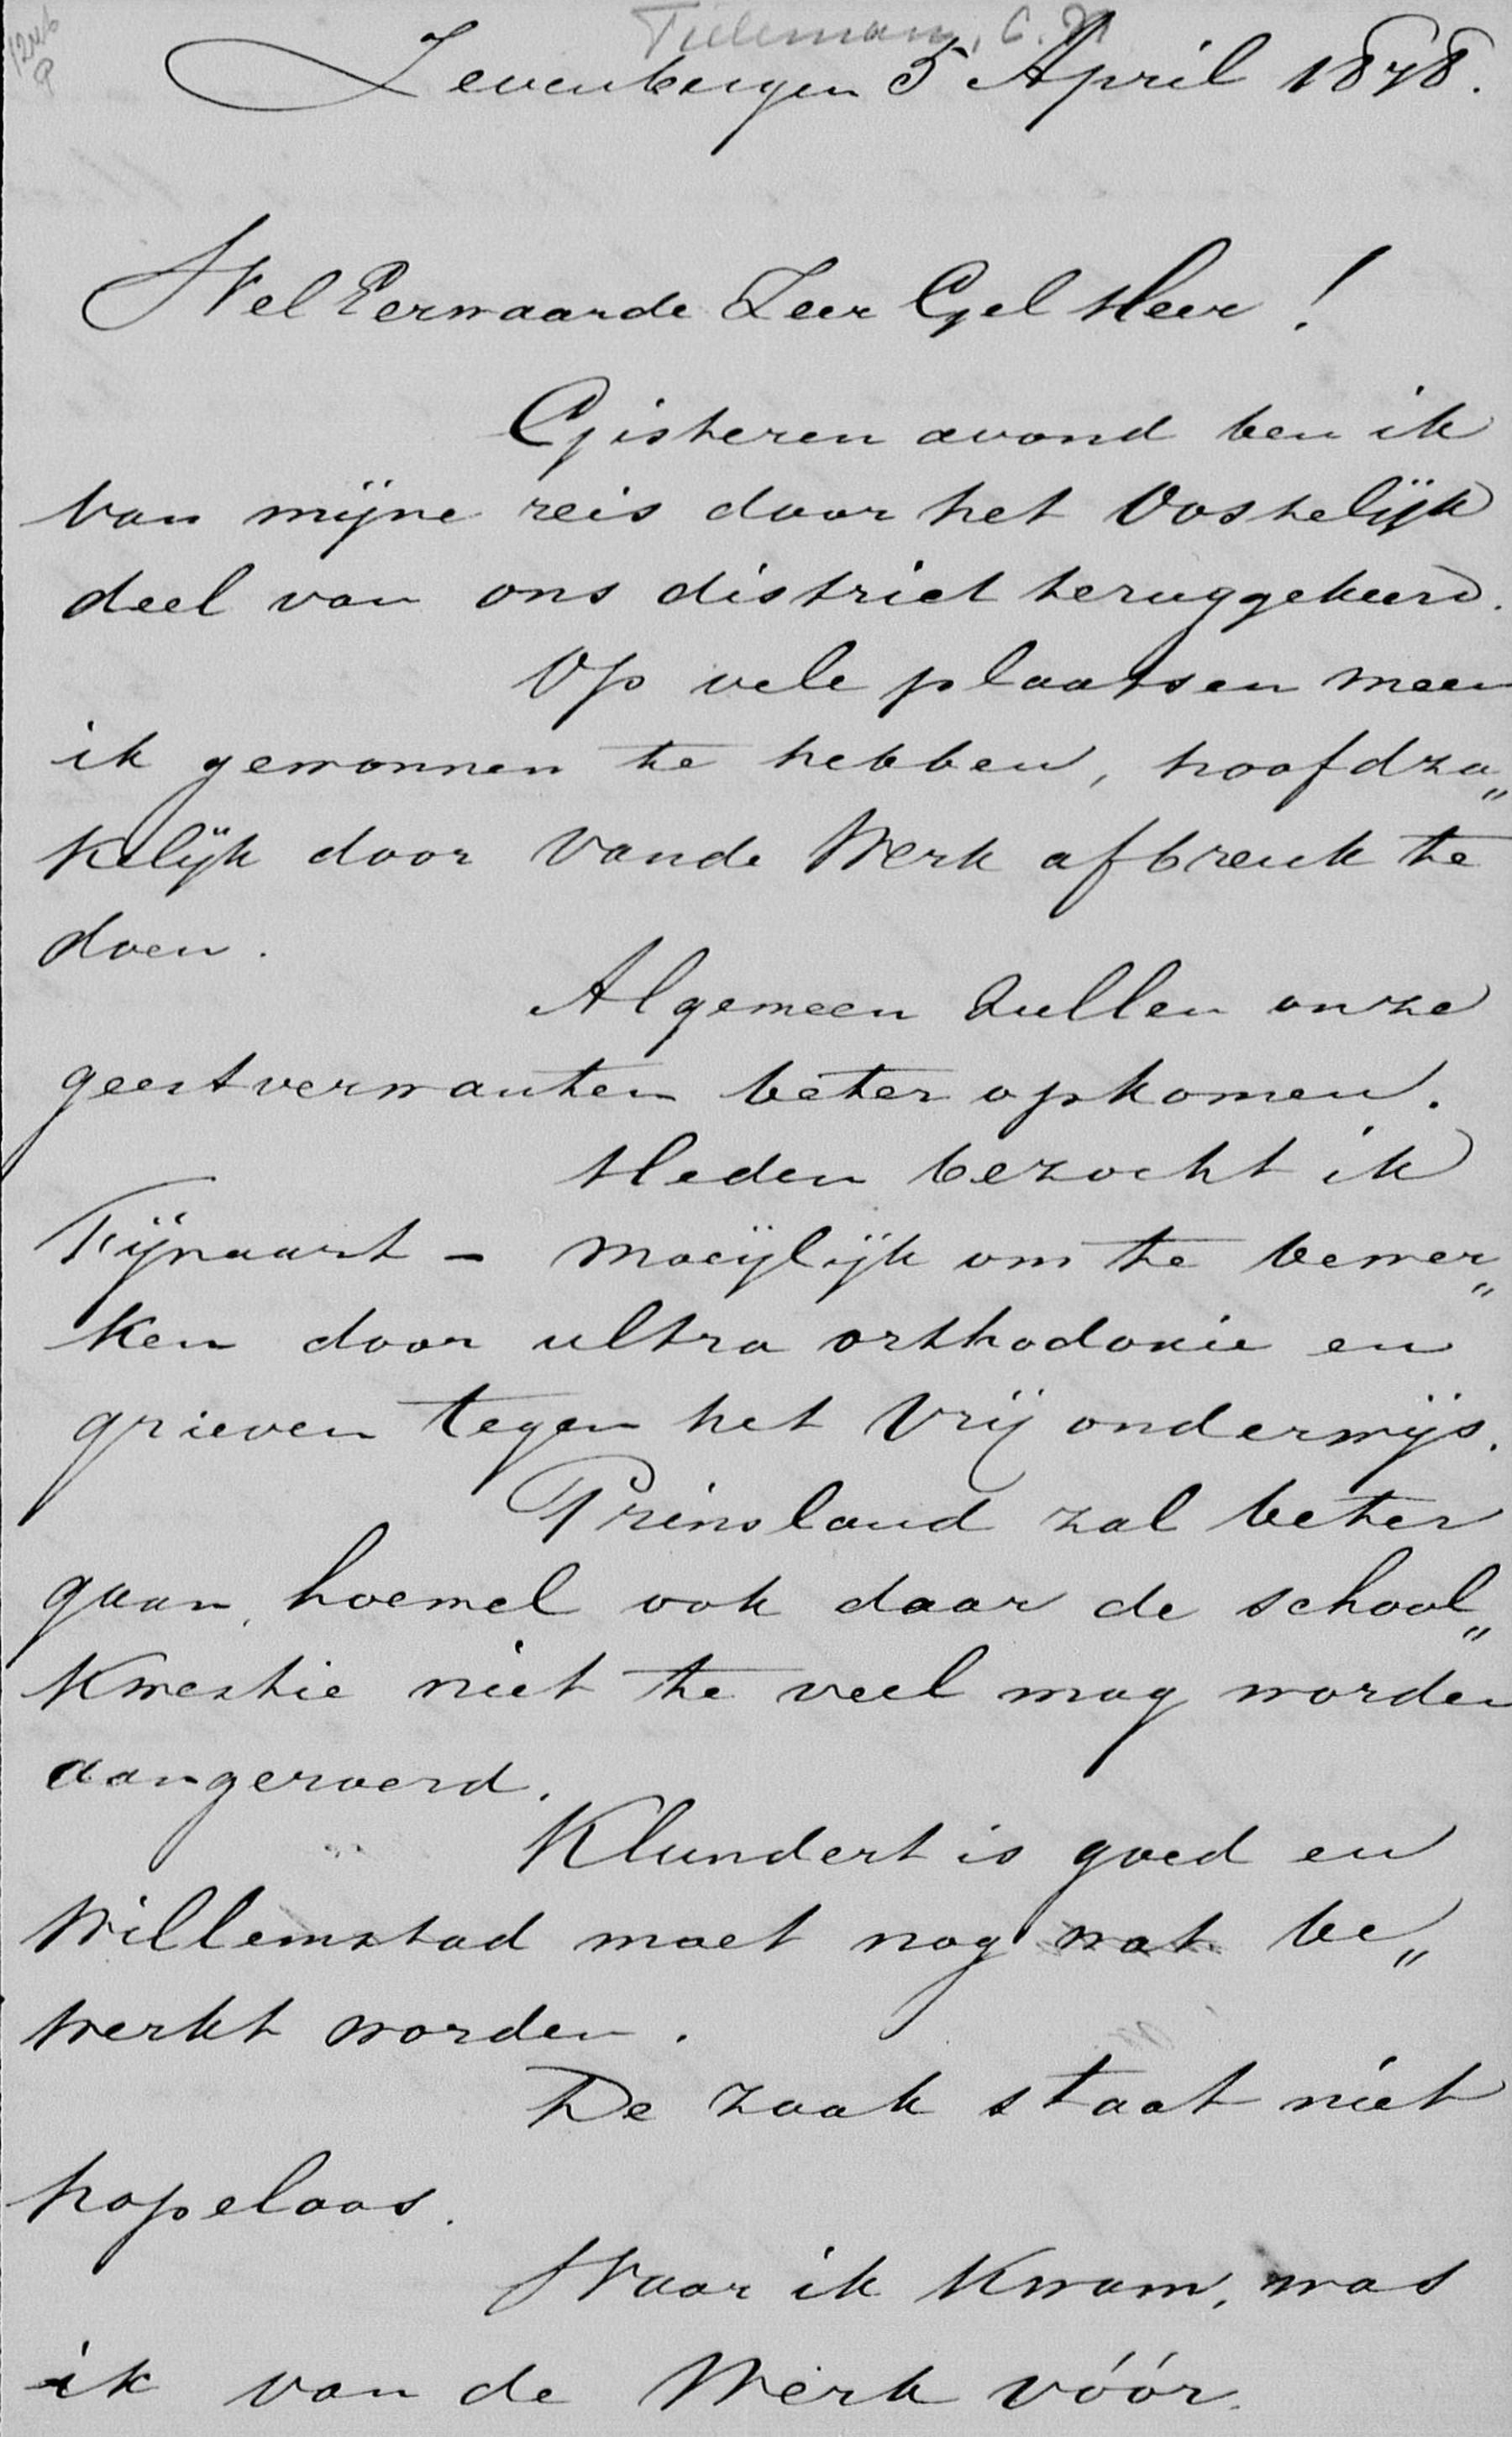 Zevenbergen 5 April 1878.
WelEerwaarde Zeer Gel Heer!
Gisteren avond ben ik
van mijne reis door het Oostelijk
deel van ons district teruggekeerd.
Op vele plaatsen meen
ik gewonnen te hebben, hoofdza„
kelijk door Vande Werk afbreuk te
doen.
Algemeen zullen onze
geestverwanten beter opkomen.
Heden bezocht ik
Fijnaart - moeijlijk om te bewer„
ken door ultra orthodoxie en
grieven tegen het Vrij onderwijs.
Prinsland zal beter
gaan, hoewel ook daar de school„
kwestie niet te veel mag worden
aangeroerd.
Klundert is goed en
Willemstad moet nog wat be„
werkt worden.
De zaak staat niet
hopeloos.
Waar ik kwam, was
ik van de Werk vóór.